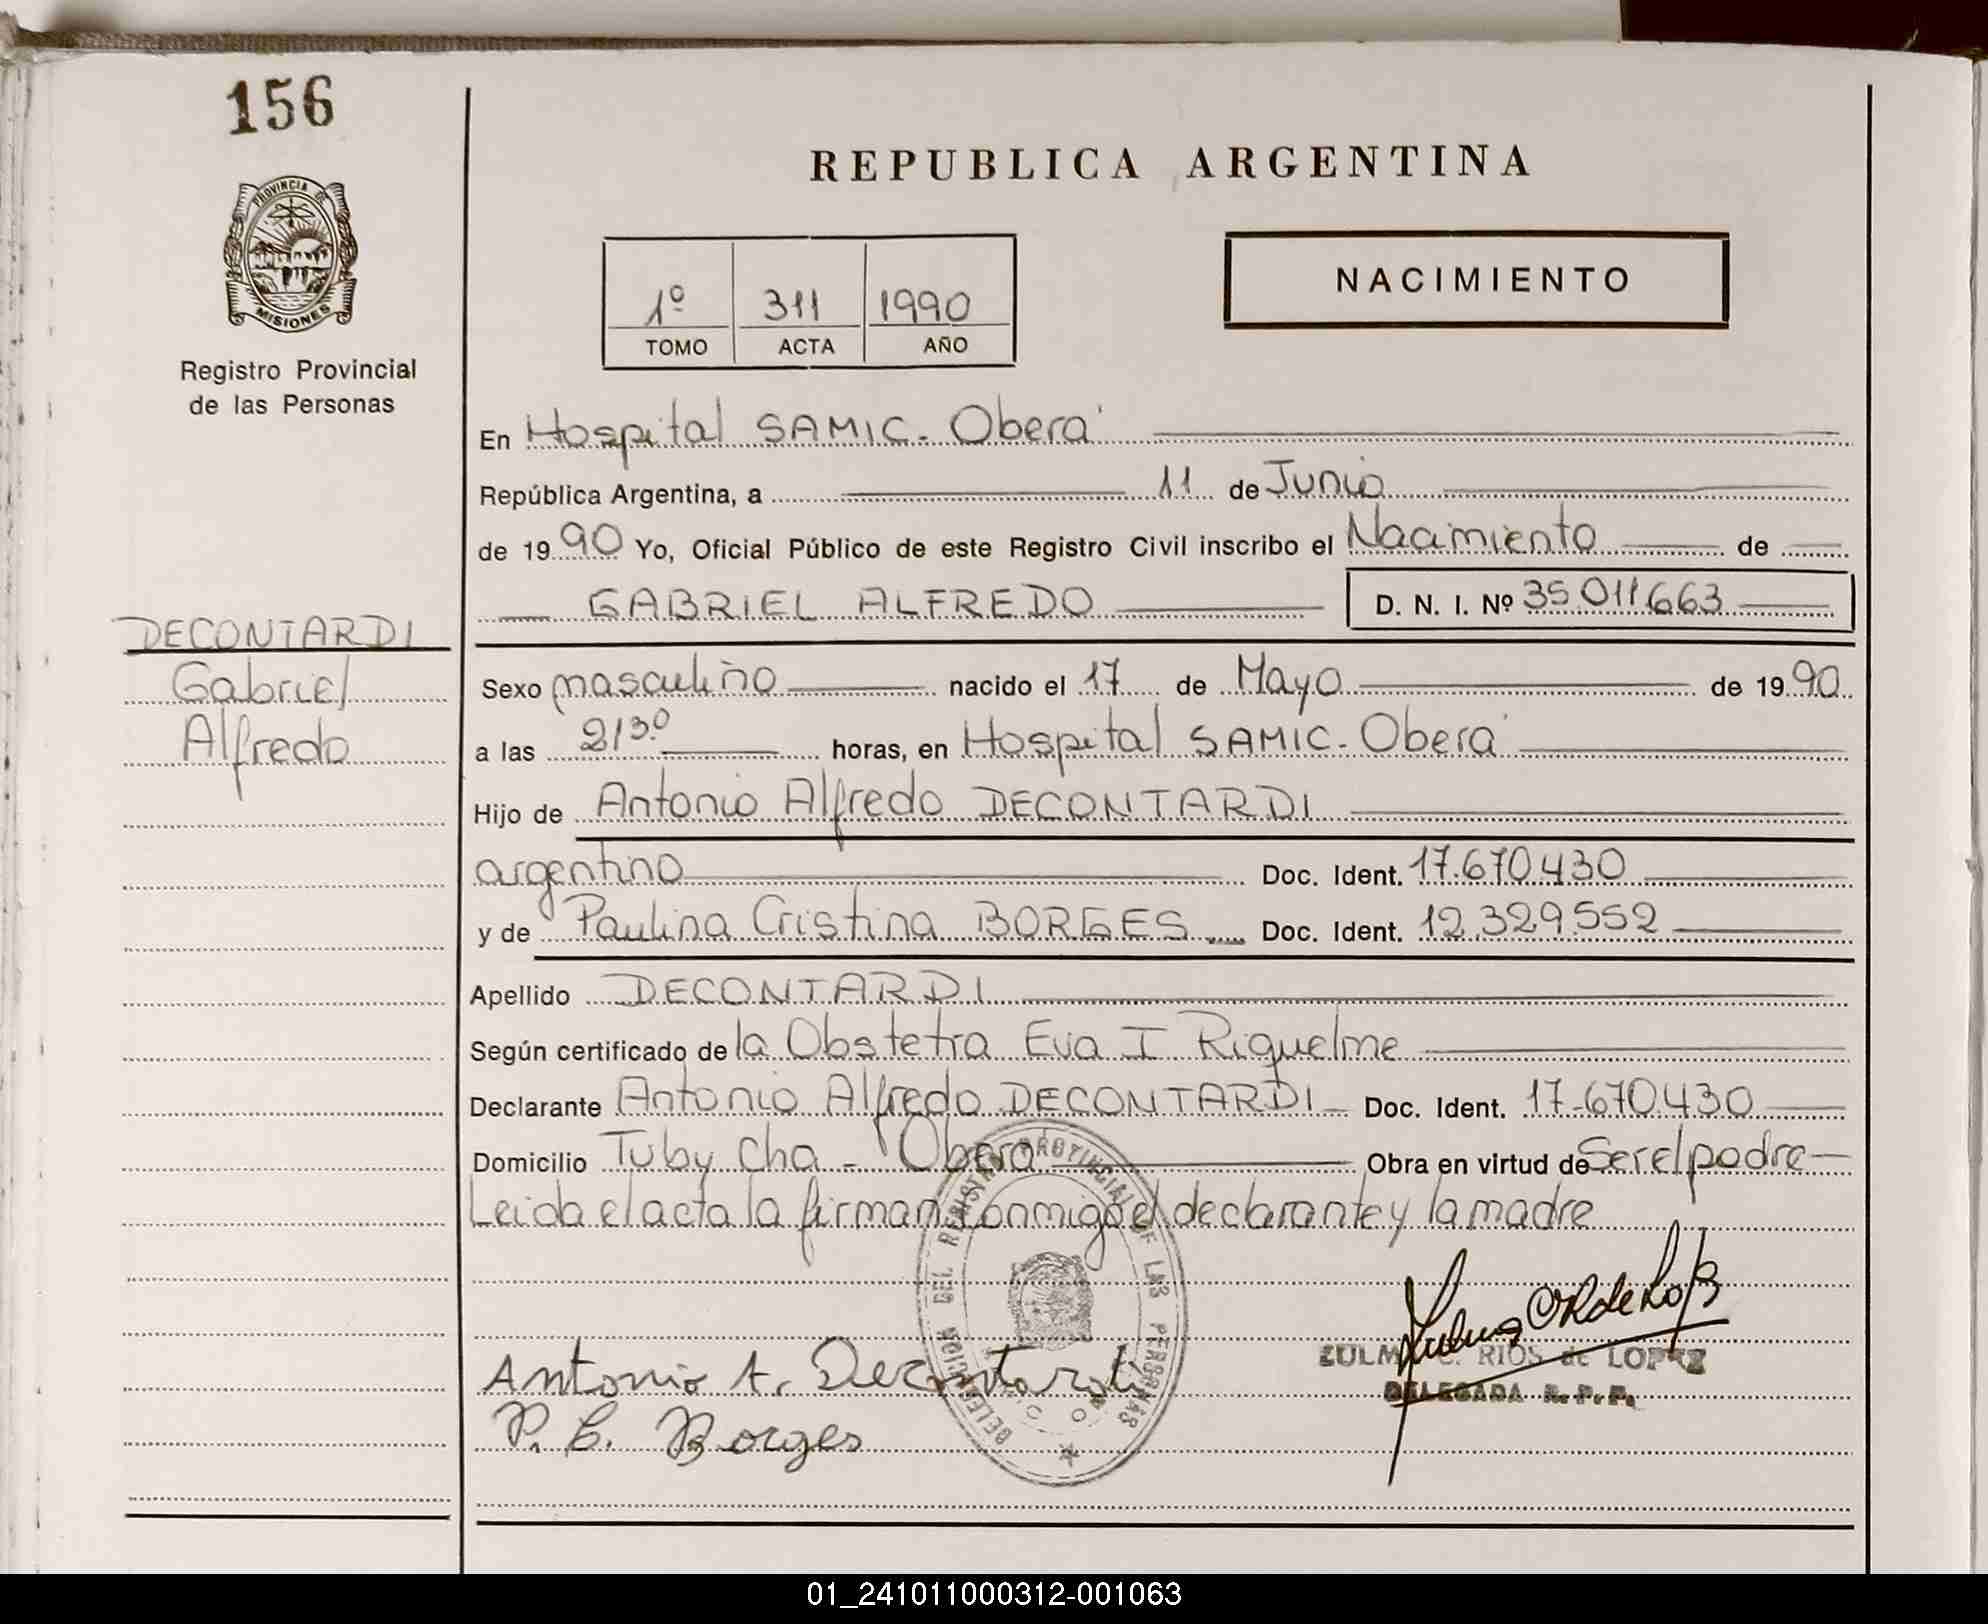 156
PROVINCIA DE
MISIONES
Registro Provincial
de las Personas
DECONTARDI
Gabriel
Alfredo
REPUBLICA ARGENTINA
NACIMIENTO
1º 311 1990
TOMO ACTA AÑO
En Hospital SAMIC - Oberá
República Argentina, a 11 de Junio
de 1990 Yo, Oficial Público de este Registro Civil inscribo el Nacimiento de
GABRIEL ALFREDO D. N. I. Nº 35011663
Sexo masculino nacido el 17 de Mayo de 1990
a las 2130 horas, en Hospital SAMIC - Oberá
Hijo de Antonio Alfredo DECONTARDI
argentino Doc. Ident. 17.670.430
y de Paulina Cristina BORGES Doc. Ident. 12.329.552
Apellido DECONTARDI
Según certificado de la Obstetra Eva I Riquelme
Declarante Antonio Alfredo DECONTARDI - Doc. Ident. 17.670.430
Domicilio Tuby Cha - Oberá Obra en virtud de Ser el padre
Leida el acta la firman conmigo el declarante y la madre
DELEGACION DEL REGISTRO PROVINCIAL DE LAS PERSONAS
Antonio A. Decontardi
P. C. Borges
ZULMA C. RIOS de LOPEZ
DELEGADA R. P. P.
01_241011000312-001063